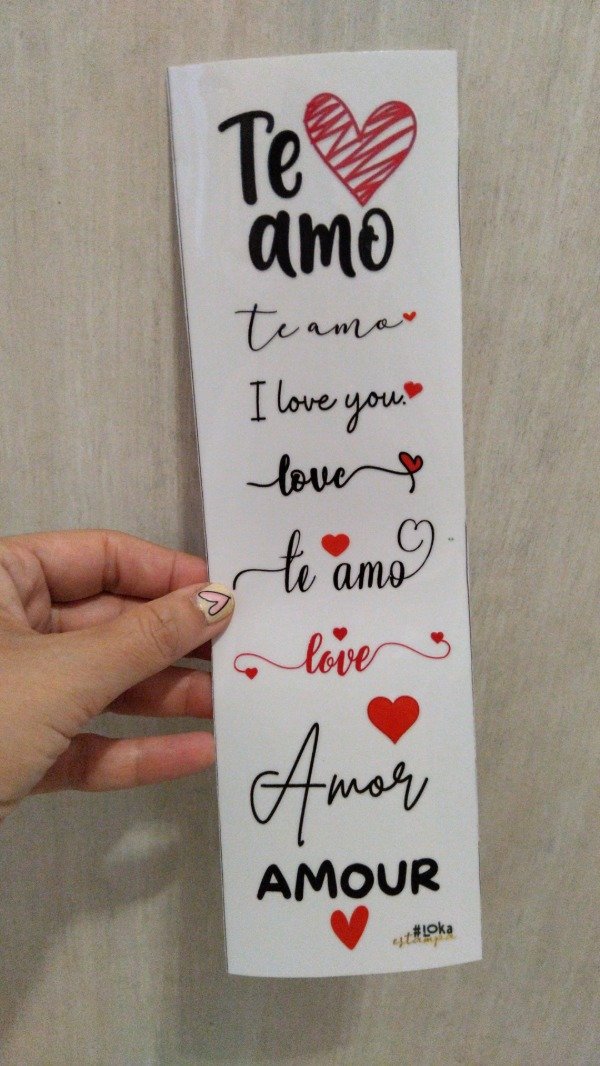 Te
amo
te amo
I love you.
love
te amo
love
Amor
AMOUR
#loka
estampa